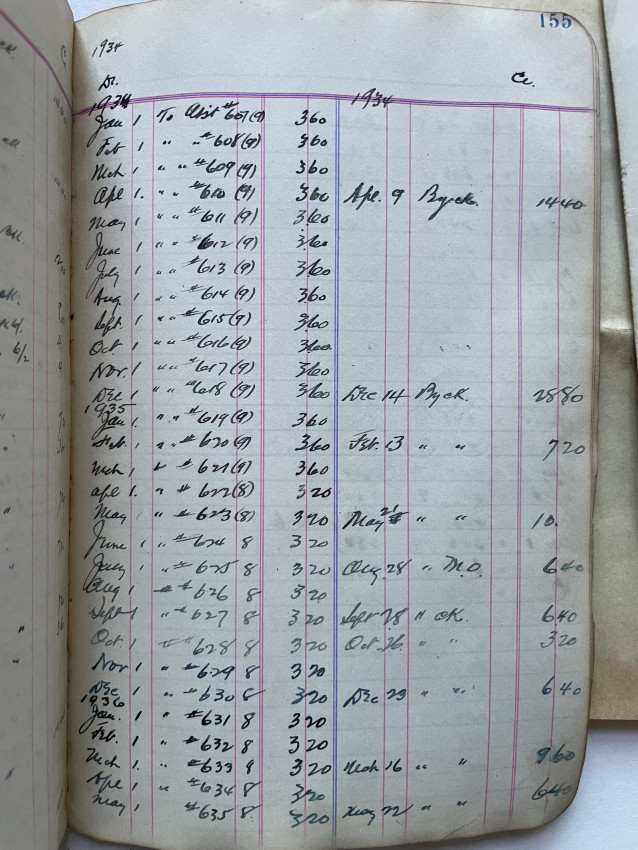 155
1934
Dr. Cr.
1934 1934
Jan 1 To Abst #607 (9) 360
Feb 1 " " #608 (9) 360
Mch 1 " " #609 (9) 360
Apl 1. " " #610 (9) 360 Apl. 9 By ck. 1440
May 1 " " #611 (9) 360
June 1 " " #612 (9) 360
July 1 " " #613 (9) 360
Aug 1 " " #614 (9) 360
Sept. 1 " " #615 (9) 360
Oct 1 " " #616 (9) 360
Nov. 1 " " #617 (9) 360
Dec 1 " " #618 (9) 360 Dec 14 By ck. 2880
1935
Jan 1. " " #619 (9) 360
Feb 1. " " #620 (9) 360 Feb. 13 " " 720
Mch 1 " #621 (9) 360
Apl 1. " #622 (8) 320
May 1 " " #623 (8) 320 May 21 " " 10.
June 1 " " #624 8 320
July 1 " #625 8 320 Aug 28 " M.O. 640
Aug 1 #626 8 320
Sept 1 " #627 8 320 Sept 28 " ck. 640
Oct. 1 #628 8 320 Oct. 26. " " 320
Nov 1 " #629 8 320
Dec 1 " #630 8 320 Dec 23 " " 640
1936
Jan. 1 " #631 8 320
Feb. 1 " #632 8 320
Mch 1. " #633 8 320 Mch 16 " " 960
Apl 1 " #634 8 320
May 1 #635 8 320 May 22 " " 640